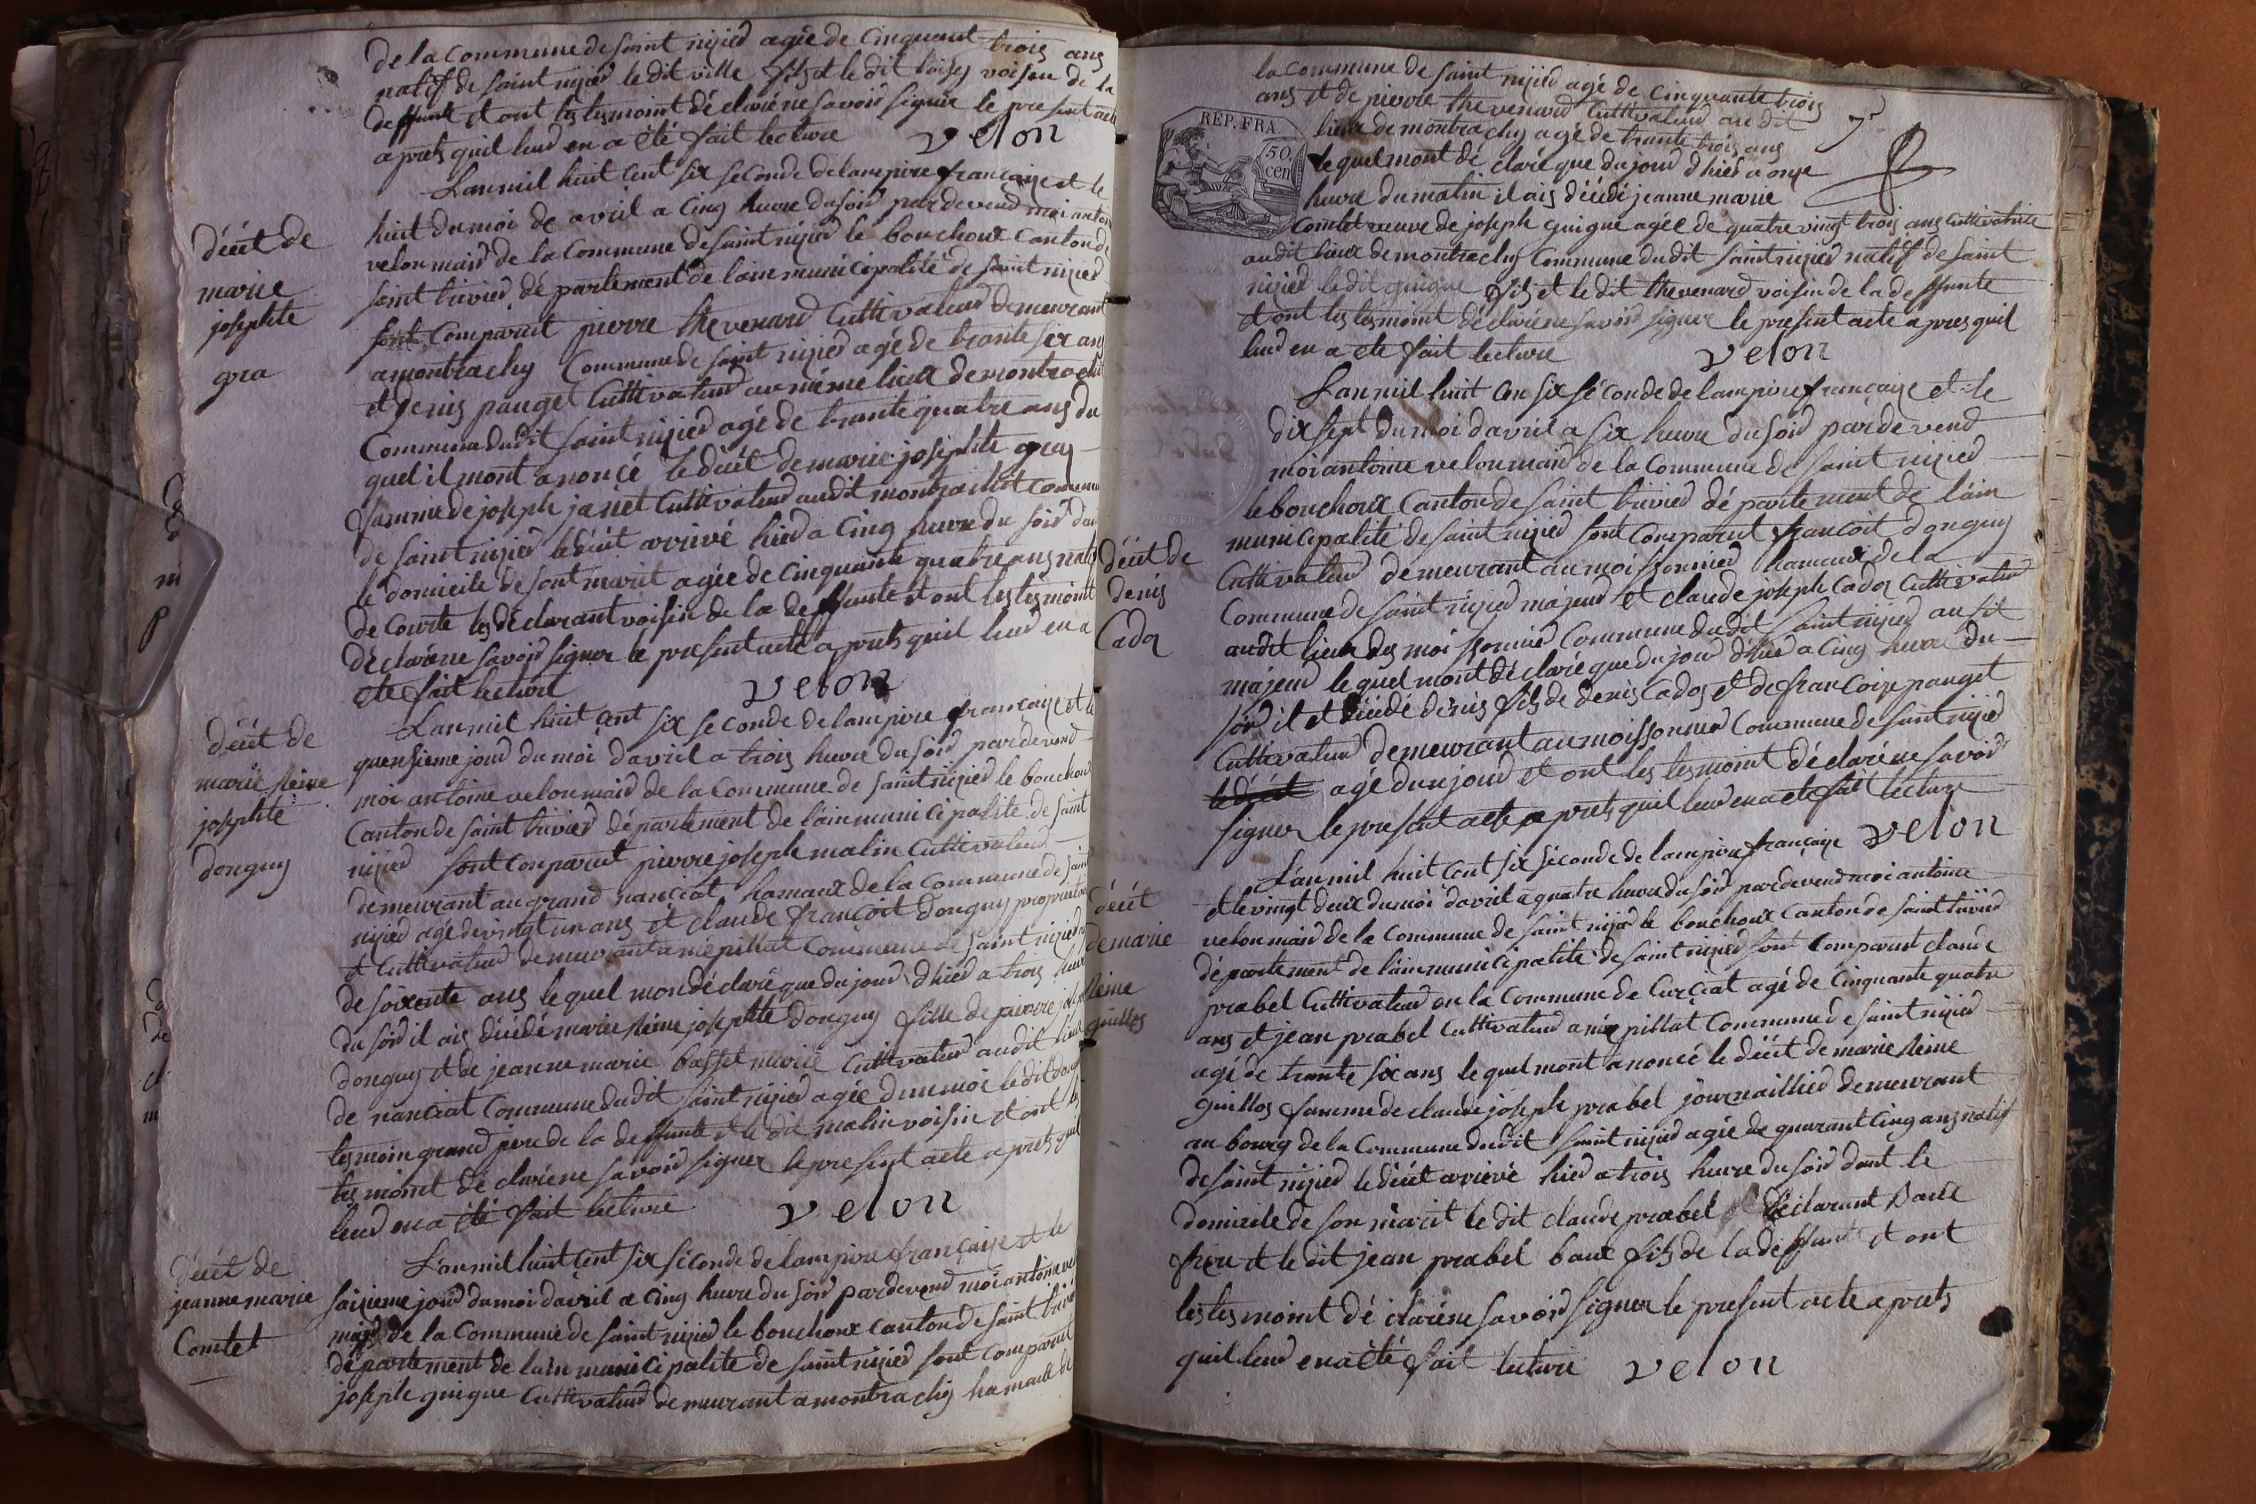 de la commune de saint nizied agée de cinquent trois ans
natif de saint nizied le dit ville fils et le dit voisin de la
deffunt et ont les tesmoint déclaréne savoir signer le present acte
aprets quil leud en a été fait lecture velon
Lan mil huit cent six seconde de lampire française et le
décét de
marie
josephte
gra
huit du moi de avril a cinq heure du soir par devend moi antoine
velon maid de la commune de saint nizied le bouchoux canton de
saint trivied département de lain municipalité de saint nizied
sont comparut pierre thevenard cultivateud demeurant
a montrachy commune de saint nizied agé de trante six ans
et denis pauget cultivateud au méme lieux de montrachy
commune dudit saint nizied agé de trante quatre ans du
quel il mont anoncé le décét de marie josephte gra
famme de joseph janet cultivateud audit montrachit commune
de saint nizied le décét arrivé hied a cinq heure du soir dan
le domicile de sont marit agée de cinquante quatre ans natif
de courte les déclarant voisin de la deffunte et ont les tesmoint
déclaréne savoir signer le present acte aprets quil leud en a
ete fait lecture velon
décét de
marie Reine
josephte
donguy
Lan mil huit cent six seconde de lampire française et le
quensieme joud du moi davril a trois heure du soir par devend
moi antoine velon maid de la commune de saint nizied le bouchoux
canton de saint trivied département de lain municipalité de saint
nizied sont conparut pierre joseph malin cultivateud
demeurant au grand nanciat hamaux de la commune de saint
nizied agé de vingt un ans et claude françoit donguy proprietaire
et cultivateud demeurant a mépillat commune de saint nizied
de soixente ans le quel mon déclaré que du joud dhied a trois heure
du soir il ais décédé marie Reine josephte donguy fille de pierre joseph
donguy et de jeanne marie basset marié cultivateud audit lieux
de nanciat commune dudit saint nizied agée dun moi le dit donguy
tesmoin grand pere de la deffunte et le dit malin voisin et ont les
tesmoint déclaréne savoir signer le present acte aprets quil
leud en a été fait lecture velon
décét de
jeanne marie
Comtet
Lan mil huit cent six séconde de lampire française et le
saizieme joud du moi davril a cinq heure du soir par devend moi antoine velon
maid de la commune de saint nizied le bouchoux canton de saint trivied
département de lain municipalité de saint nizied sont comparut
joseph guigue cultivateud demeurant a montrachy hamaux de
la commune de saint nizied agé de cinquante trois
ans et de pierre thevenard cultivateud au dit
lieux de montrachy agé de trante trois ans
le quel mont déclaré que du joud dhied a onze
heure du matin il ais décédé jeanne marie
REP. FRA
50
cen
comtet veuve de joseph guigue agée de quatre vingt trois ans cultivatrice
audit lieux de montrachy commune dudit saint nizied natif de saint
nizied le dit guigue fils et le dit thevenard voisin de la deffunte
et ont les tesmoint déclaréne savoir signer le present acte apres quil
leud en a ete fait lecture velon
Lan mil huit cen six séconde de lampire française et le
dix sept du moi davril a six heure du soir par devend
moi antoine velon maid de la commune de saint nizied
le bouchoux canton de saint trivied département de lain
municipalité de saint nizied sont comparut francoit donguy
décét de
denis
Cadoz
cultivateud demeurant au moissonnied hamaux de la
commune de saint nizied majeud et claude joseph cadoz cultivateud
audit lieux des moissonnied commune dudit saint nizied ausit
majeud le quel mont déclaré que du joud dhied a cinq heure du
soir il et décédé denis fils de denis cadoz et de francoise pauget
cultivateud demeurant au moissonnied commune de saint nizied
le décét agé dun joud et ont les tesmoint déclaréne savoir
signer le present acte aprets quil leud en a ete fait lecture
velon
Lan mil huit cent six séconde de lampire française
décét
de marie
Reine
guillos
et le vingt deux du moi davril a quatre heure du soir par devend moi antoine
velon maid de la commune de saint nizied le bouchoux canton de saint trivied
département de lain municipalité de saint nizied sont comparut claude
prabel cultivateud en la commune de curciat agé de cinquante quatre
ans et jean prabel cultivateud a mépillat commune de saint nizied
agé de trante six ans le quel mont anoncé le décét de marie Reine
guillos famme de claude joseph prabel journaillied demeurant
au bourg de la commune dudit saint nizied agée de quarant cinq ans natif
de saint nizied le décét arrivé hied a trois heure du soir dant le
domicile de son marit le dit claude prabel déclarant
frere et le dit jean prabel baux fils de la deffunte et ont
les tesmoint déclaréne savoir signer le present acte aprets
quil leud en a été fait lecture velon